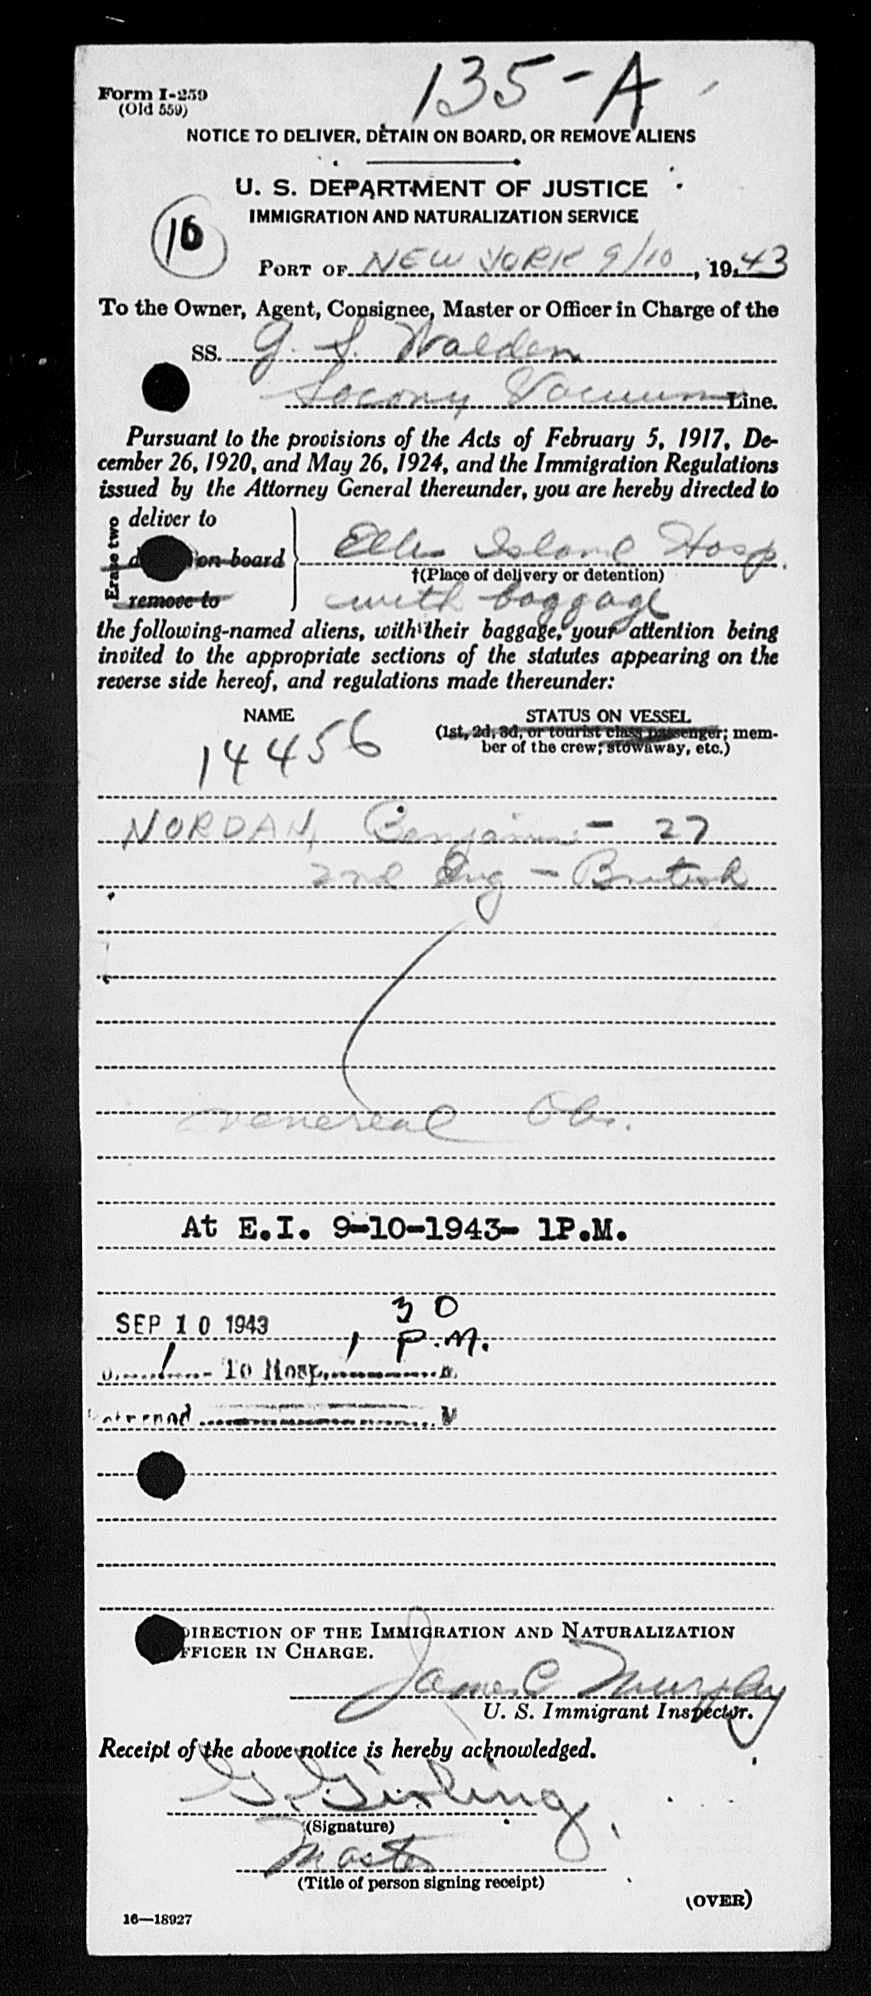 135-A
Form I-259
(Old 559)
NOTICE TO DELIVER, DETAIN ON BOARD, OR REMOVE ALIENS
U. S. DEPARTMENT OF JUSTICE
IMMIGRATION AND NATURALIZATION SERVICE
16
PORT OF NEW YORK 9/10, 1943
To the Owner, Agent, Consignee, Master or Officer in Charge of the
SS. G. S. Walden
Socony Vacuum Line.
Pursuant to the provisions of the Acts of February 5, 1917, De-
cember 26, 1920, and May 26, 1924, and the Immigration Regulations
issued by the Attorney General thereunder, you are hereby directed to
Erase two
deliver to
on board
remove to
Ellis Island Hosp.
†(Place of delivery or detention)
with baggage
the following-named aliens, with their baggage, your attention being
invited to the appropriate sections of the statutes appearing on the
reverse side hereof, and regulations made thereunder:
NAME
STATUS ON VESSEL
(1st, 2d, 3d, or tourist class passenger; mem-
ber of the crew; stowaway, etc.)
14456
NORDAN, Benjamin - 27
2nd Eng - British
venereal Obs.
At E.I. 9-10-1943- 1P.M.
SEP 10 1943
1 30 P.M.
To Hosp.
DIRECTION OF THE IMMIGRATION AND NATURALIZATION
OFFICER IN CHARGE.
James C Murphy
U. S. Immigrant Inspector.
Receipt of the above notice is hereby acknowledged.
G. Girling
(Signature)
Master
(Title of person signing receipt)
(OVER)
16—18927